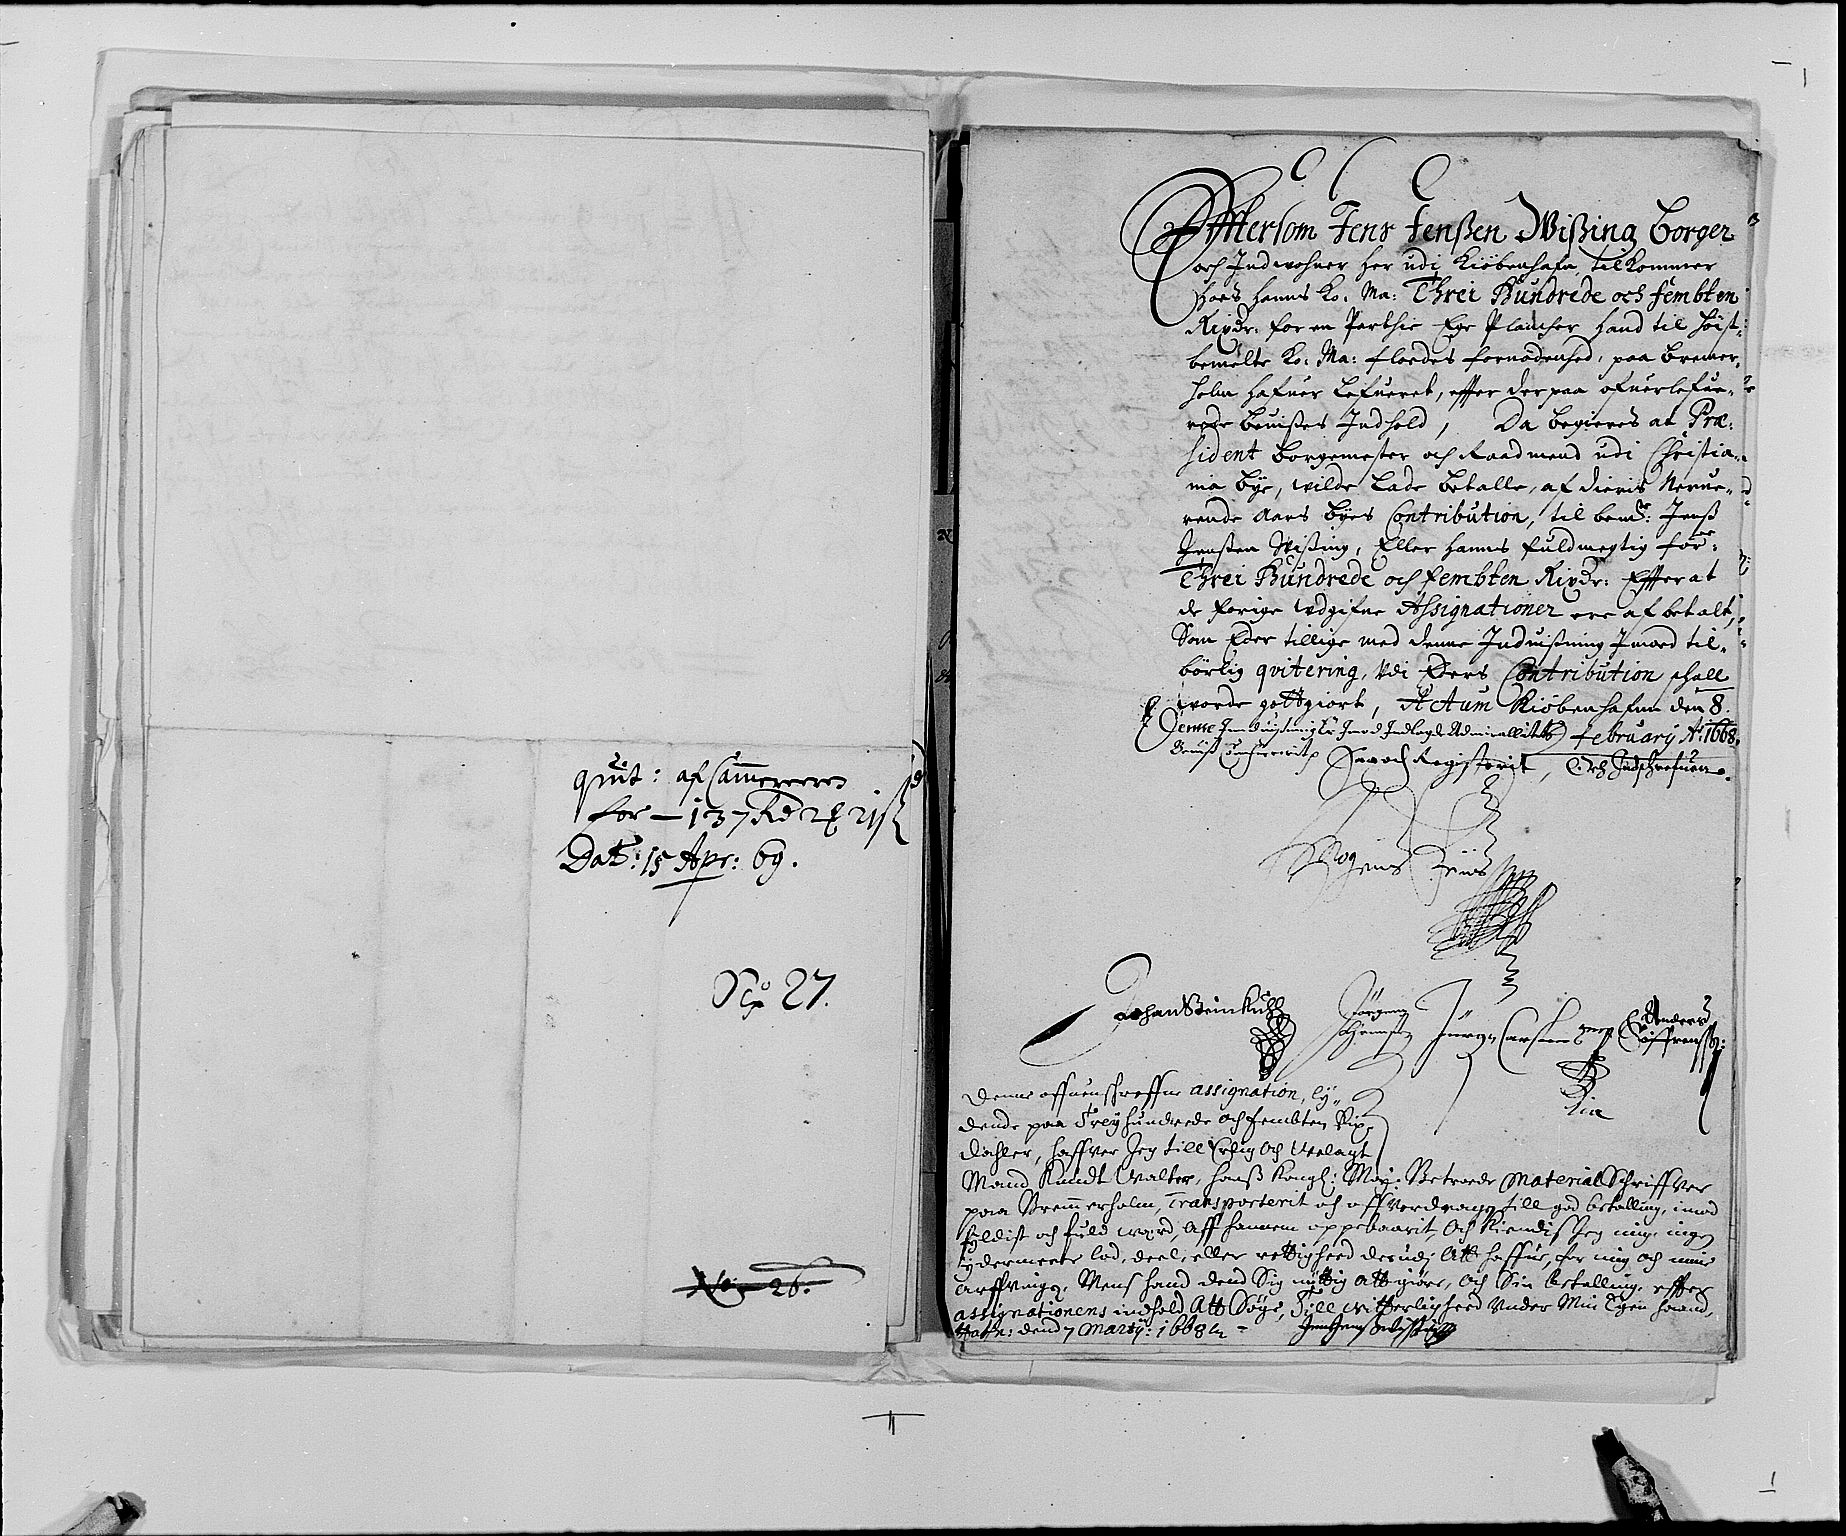 quit: af Cammereren
for — 137 Rd 2 ß 21 ß
Dat: 15 Apr: 69.
No 27.
No 26.
Efftersom Jens Jenßen Wißing Borger
och Indwohner her udi Kiöbenhafn tilkommer
hoes hanns Ko: Ma: Threi Hundrede och fembten
Rixdr: for en Parthie Ege Plancher hand til höist-
bemelte Ko: Ma: floedes fornödenhed, paa Bremer-
holm hafuer Lefueret, effter derpaa ofuerlefue-
rede beuißes Indhold, Da begieres at Præ-
sident Borgemester och Raadmend udi Christia-
nia bye, wilde Lade betalle, af dieris Nerue-
rende Aars byes Contribution, til bemte: Jenß
Jenßen Wißing, Eller hanns fuldmegtig for:ne
Threi Hundrede och fembten Rixdr: Effter at
de forige udgifne Assignationer ere afbetalt,
Som Eder tillige med denne Induißning Imod til-
börlig qvitering, udi Eders Contribution schall
worde gottgiort, Actum Kiöbenhafn den 8.
february Ao: 1668.
Denne Induißning Er Imod Indlagde Admiralitets
Beuiß
Saa och Registerit, Och Indschrefuen.
Mogens Friis
Johan Steinkuhl
Jörgen
Jürgen Carstens
Anders
Söffrenß:
Denne offuenschreffne assignation, ly-
dende paa Trey hundrede och fembten Rix-
dahler, haffver Jeg till Erlig och Velagt
Mand Knudt Walter, hanß Kongl: May: Betroede Material Schriffver
paa Bremmerholm, Transporterit och offverdragen till god betalling, imod
fyldist och fuld werd, aff hannem oppebaarit, och Kiendis Jeg mig ingen
ydermeere lod, deel, eller rettigheed derudj Att haffue, for mig och mine
arffvinger, Mens hand dend Sig nyttig att giöre, och Sin betalling, effter
assignationens indhold Att Söge, Till witterligheed Under Min Egen haand,
Hafn: dend 7 Marty: 1668
Jens Jensen Wissing